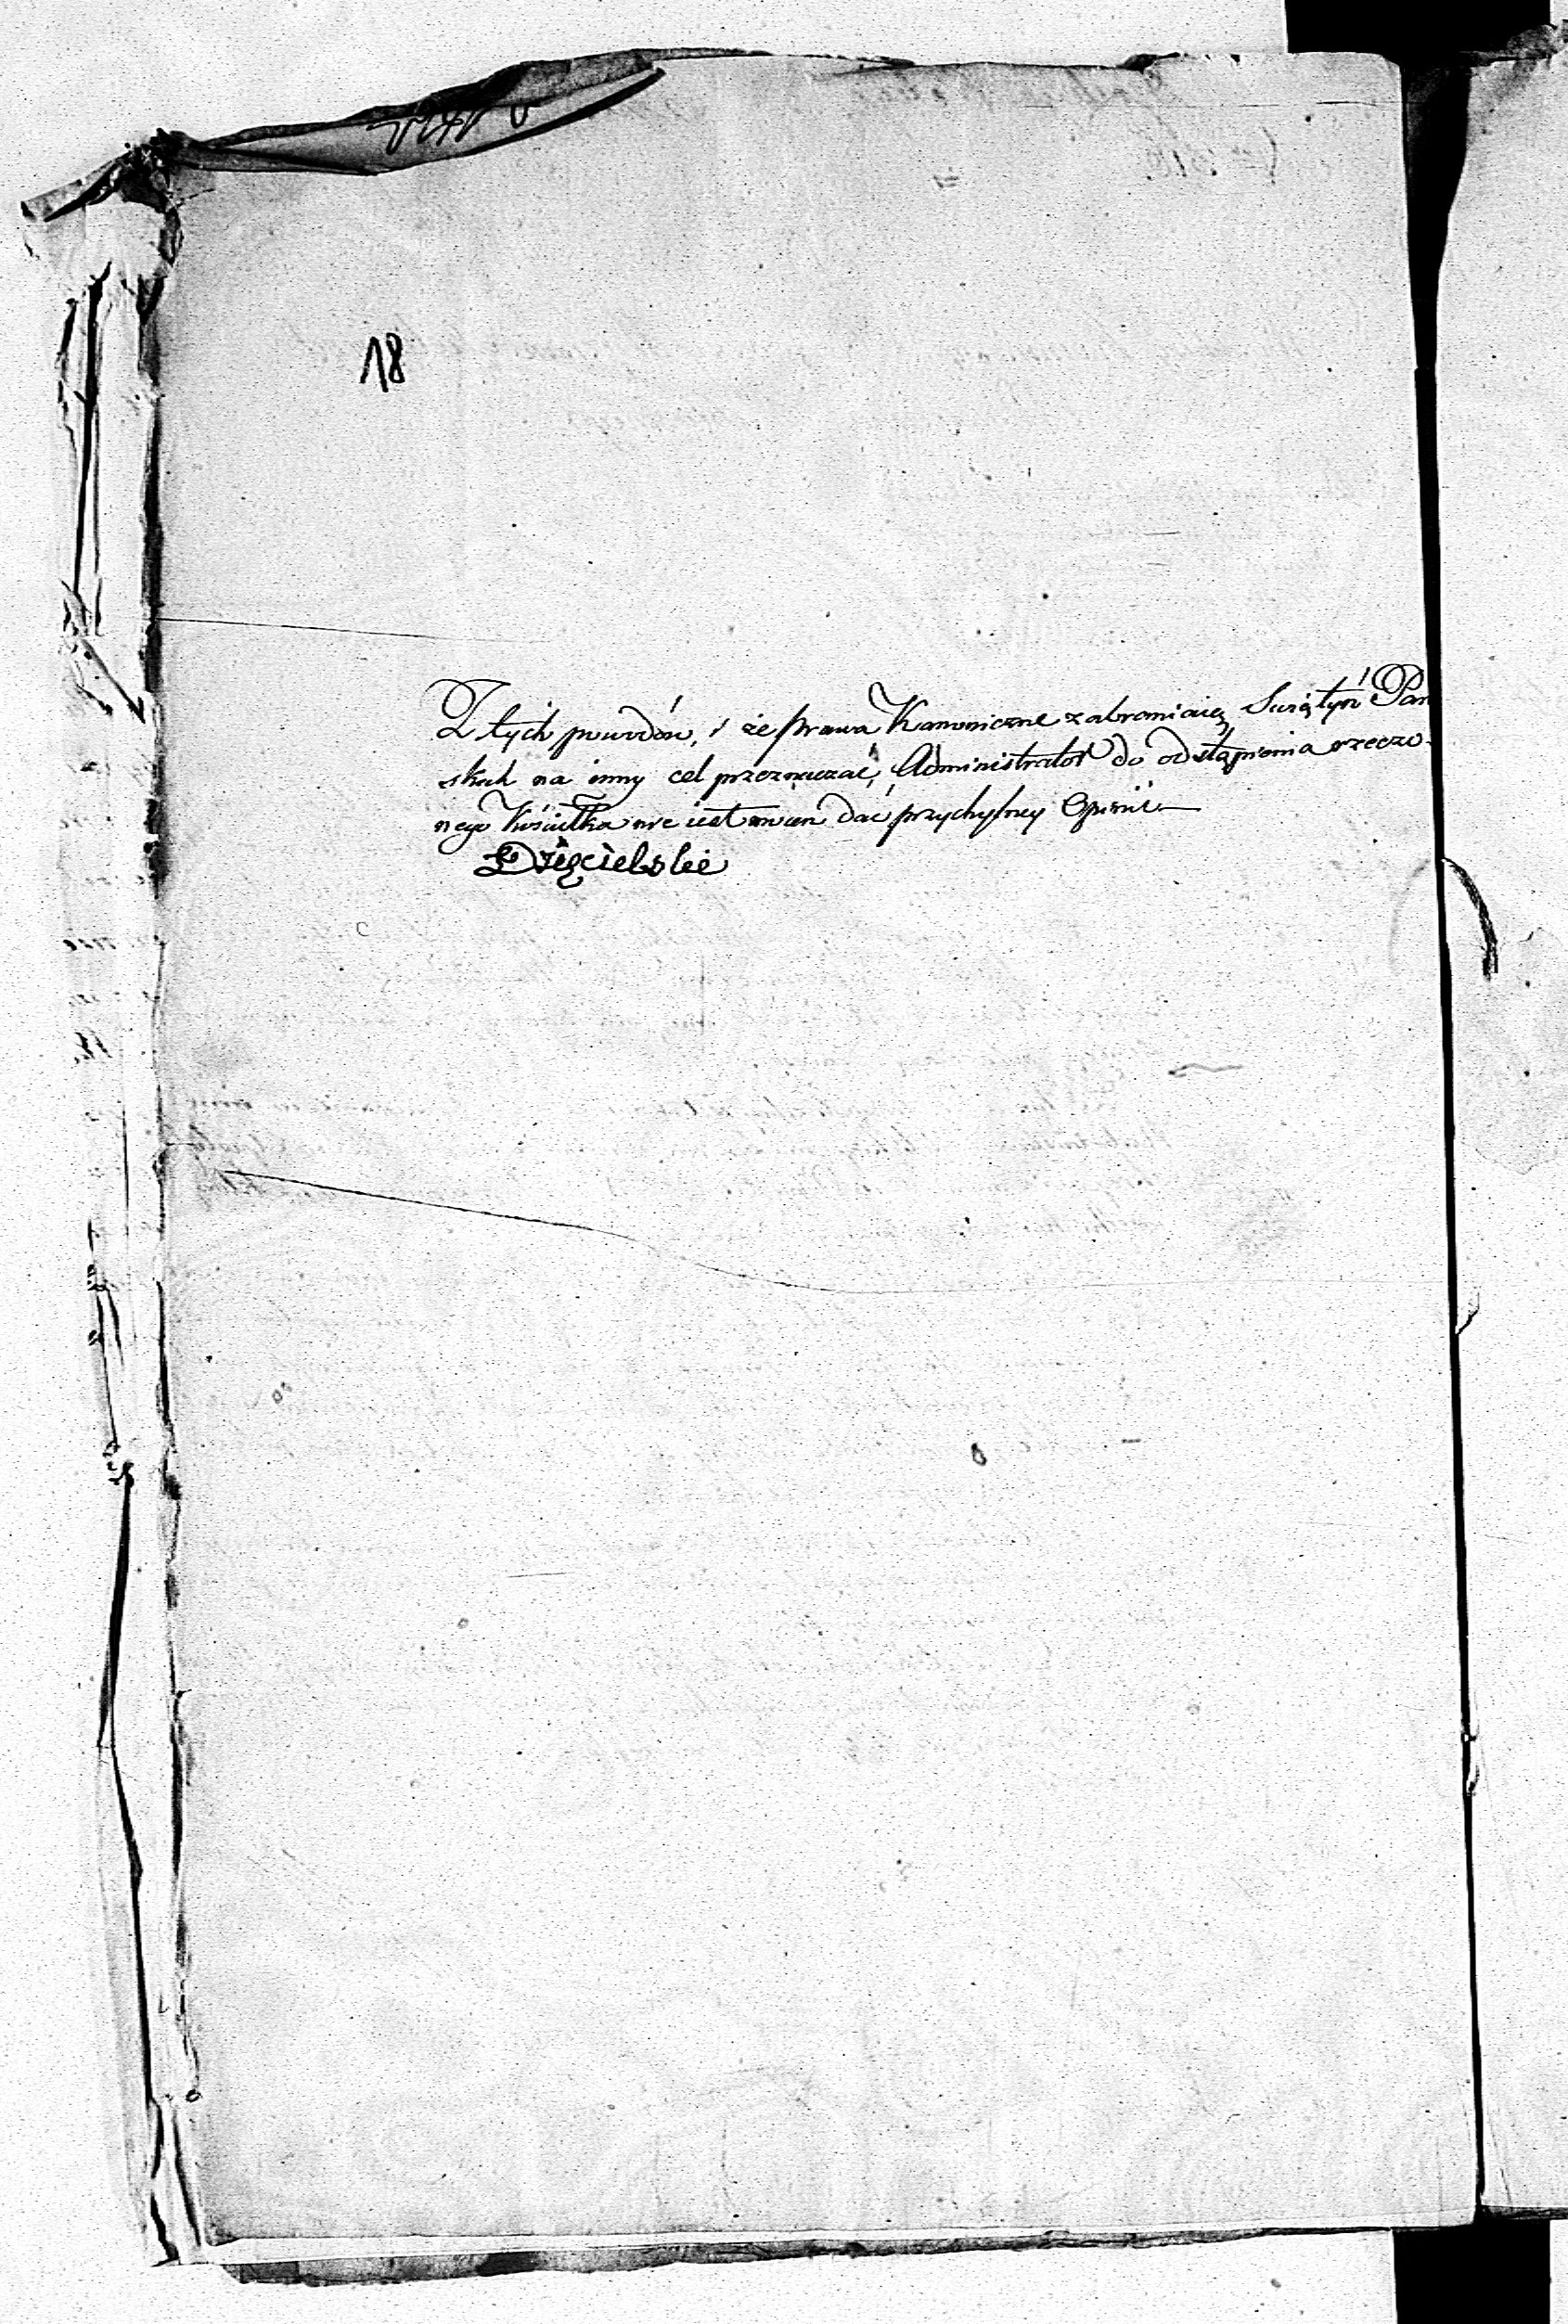 18
Z tych powodów, i że prawa Kanoniczne zabraniaią Swiątyń Pań
skich na inny cel przeznaczać, Administrator do odstąpienia rzeczo-
nego Kościułka nie iest w stan dać przychylney Opinii
Dzięcielski